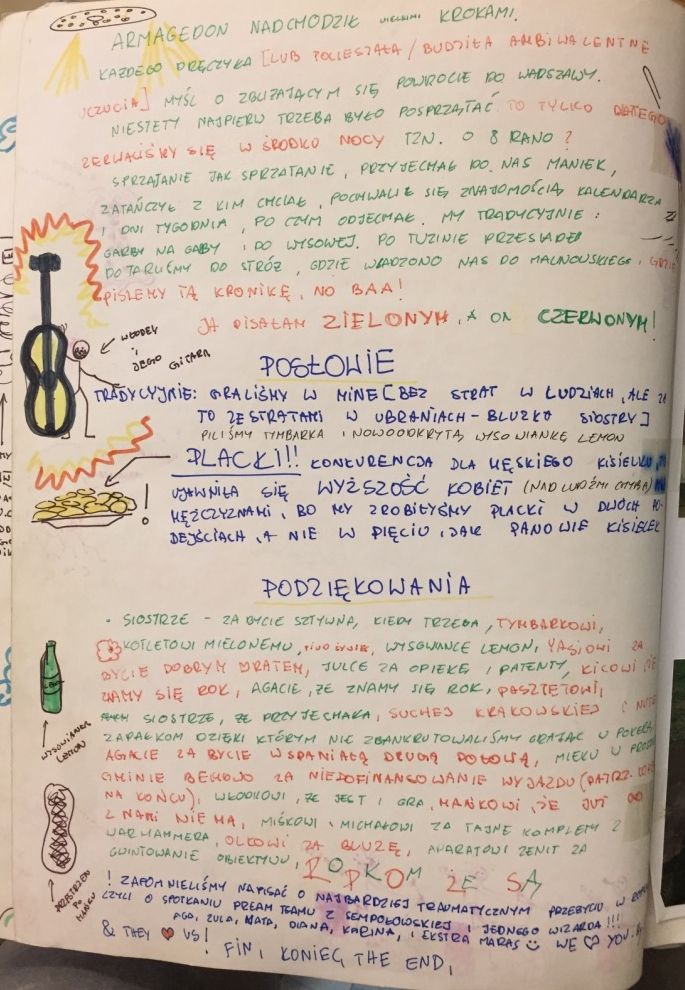 ARMAGEDON NADCHODZIŁ WIELKIMI KROKAMI.
KAŻDEGO DRĘCZYŁA [LUB POCIESZAŁA / BUDZIŁA AMBIWALENTNE
UCZUCIA] MYŚL O ZBLIŻAJĄCYM SIĘ POWROCIE DO WARSZAWY.
NIESTETY NAJPIERW TRZEBA BYŁO POSPRZĄTAĆ. TO TYLKO DLATEGO
ZERWALIŚMY SIĘ W ŚRODKU NOCY TZN. O 8 RANO?
SPRZĄTANIE JAK SPRZĄTANIE, PRZYJECHAŁ DO NAS MANIEK,
ZATAŃCZYŁ Z KIM CHCIAŁ, POCHWALIŁ SIĘ ZNAJOMOŚCIĄ KALENDARZA
I DNI TYGODNIA, PO CZYM ODJECHAŁ. MY TRADYCYJNIE:
GARBY NA GABY I DO WYSOWEJ. PO TUZINIE PRZESIADEK
DOTARLIŚMY DO STRÓŻ, GDZIE WŁADZONO NAS DO MALINOWSKIEGO, GDZIE
PISZEMY TĄ KRONIKĘ, NO BAA!
JA PISAŁAM ZIELONYM, A ON CZERWONYM!
WŁODEK I JEGO GITARA
POSŁOWIE
TRADYCYJNIE: GRALIŚMY W MINE [BEZ STRAT W ŁUDZIACH, ALE ZA
TO ZE STRATAMI W UBRANIACH - BLUZKA SIOSTRY]
PILIŚMY TYMBARKA I NOWOODKRYTĄ WYSOWIANKĘ LEMON
PLACKI!! KONKURENCJA DLA MĘSKIEGO KISIELKU,
UJAWNIŁA SIĘ WYŻSZOŚĆ KOBIET (NAD LUDŹMI CHYBA)
MĘŻCZYZNAMI, BO MY ZROBIŁYŚMY PLACKI W DWÓCH PO-
DEJŚCIACH, A NIE W PIĘCIU, JAK PANOWIE KISIELEK
!
PODZIĘKOWANIA
• SIOSTRZE - ZA BYCIE SZTYWNĄ, KIEDY TRZEBA, TYMBARKOWI,
KOTLETOWI MIELONEMU, WYSOWIANCE LEMON, YASIOWI ZA
BYCIE DOBRYM BRATEM, JULCE ZA OPIEKĘ I PATENTY, KICOWI, ŻE
ZNAMY SIĘ ROK, AGACIE, ŻE ZNAMY SIĘ ROK, PASZTETOWI,
SIOSTRZE, ŻE PRZYJECHAŁA, SUCHEJ KRAKOWSKIEJ I NUTE
ZAPAŁKOM DZIĘKI KTÓRYM NIE ZBANKRUTOWALIŚMY GRAJĄC W POKERA,
AGACIE ZA BYCIE WSPANIAŁĄ DRUGĄ POŁOWĄ, MLEKU W PROSZKU
GMINIE BEMOWO ZA NIEDOFINANSOWANIE WYJAZDU (PATRZ.
NA KOŃCU), WŁODKOWI, ŻE JEST I GRA, MAŃKOWI, ŻE JUŻ GO
Z NAMI NIE MA, MIŚKOWI I MICHAŁOWI ZA TAJNE KOMPLETY Z
WARHAMMERA, OLKOWI ZA BLUZĘ, APARATOWI ZENIT ZA
GWINTOWANIE OBIEKTYWU, ROPKOM ŻE SĄ
WYSOWIANKA LEMON
PO MAŃKU
! ZAPOMNIELIŚMY NAPISAĆ O NAJBARDZIEJ TRAUMATYCZNYM PRZEBYCIU W
CZYLI O SPOTKANIU DREAM TEAMU Z SEMPOŁOWSKIEJ I JEDNEGO WIZARDA!!!
AGA, ZULA, MATA, DIANA, KARINA, I EKSTRA MARAS ☺ WE ♡ YOU
& THEY ♥ US! FIN, KONIEC, THE END,